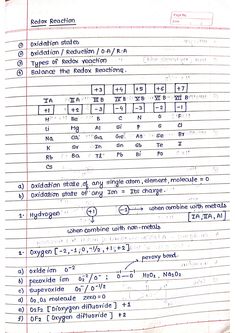 Redox Reaction
Page No.
Date
① Oxidation state.
② Oxidation / Reduction / O.A / R.A
③ Types of Redox reaction
④ Balance the Redox Reactions.
+3 +4 +5 +6 +7
I A II A III B IV B V B VI B VII B
+1 +2 -3 -4 -3 -2 -1
H Be B C N O F
Li Mg Al Si P S Cl
Na Ca Ga Ge As Se Br
K Sr In Sn Sb Te I
Rb Ba Tl Pb Bi Po
a) Oxidation state of any single atom, element, molecule = 0
b) Oxidation state of any Ion = Its charge.
1. Hydrogen +1 -1 when combine with metals
[IA, IIA, Al]
when combine with non-metals
2. Oxygen [-2, -1, 0, -1/2, +1, +2]
peroxy bond.
a) oxide ion O⁻²
b) peroxide ion O₂⁻² / O⁻ ; O—O H₂O₂, Na₂O₂
c) superoxide O₂⁻ / O⁻¹/²
d) O₂, O₃ molecule zero = 0
e) O₂F₂ [Dioxygen difluoride] +1
f) OF₂ [Oxygen difluoride] +2